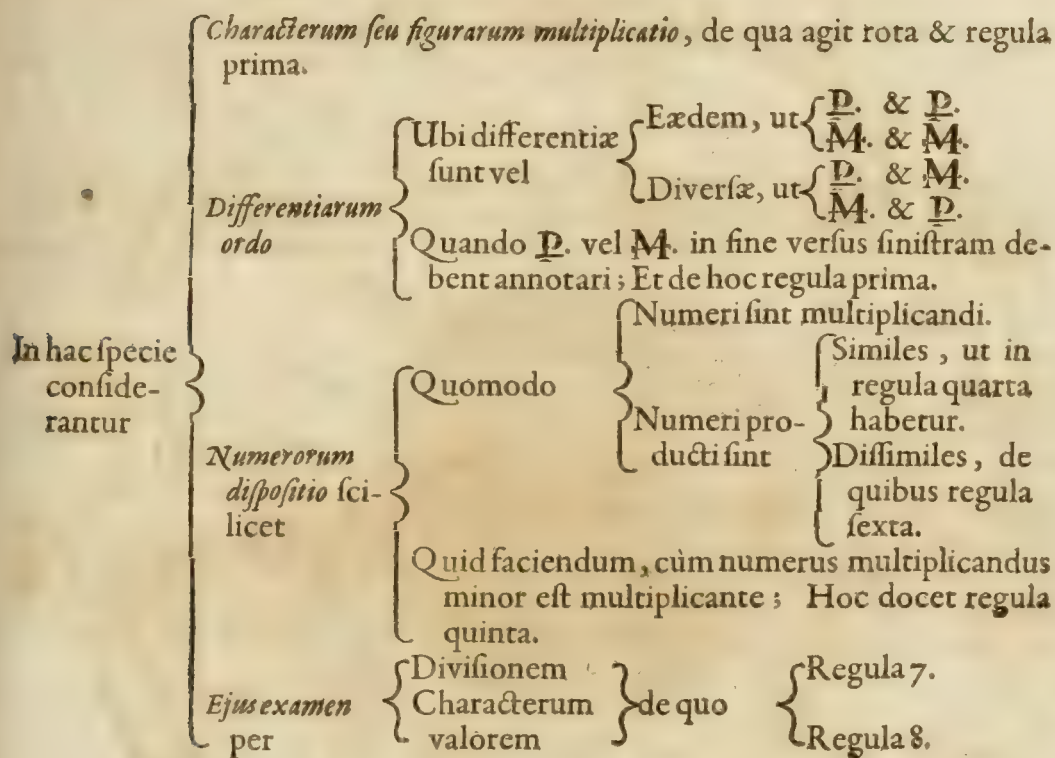 In hac ſpecie
conſide-
rantur
Characterum ſeu figurarum multiplicatio, de qua agit rota & regula
prima.
Differentiarum
ordo
Ubi differentiæ
ſunt vel
Eædem, ut
P. & P.
M. & M.
Diverſæ, ut
P. & M.
M. & P.
Quando P. vel M. in fine verſus ſiniſtram de-
bent annotari; Et de hoc regula prima.
Numerorum
diſpoſitio ſci-
licet
Quomodo
Numeri ſint multiplicandi.
Numeri pro-
ducti ſint
Similes, ut in
regula quarta
habetur.
Diſſimiles, de
quibus regula
ſexta.
Quid faciendum, cùm numerus multiplicandus
minor eſt multiplicante; Hoc docet regula
quinta.
Ejus examen
per
Diviſionem
Characterum
valòrem
de quo
Regula 7.
Regula 8.